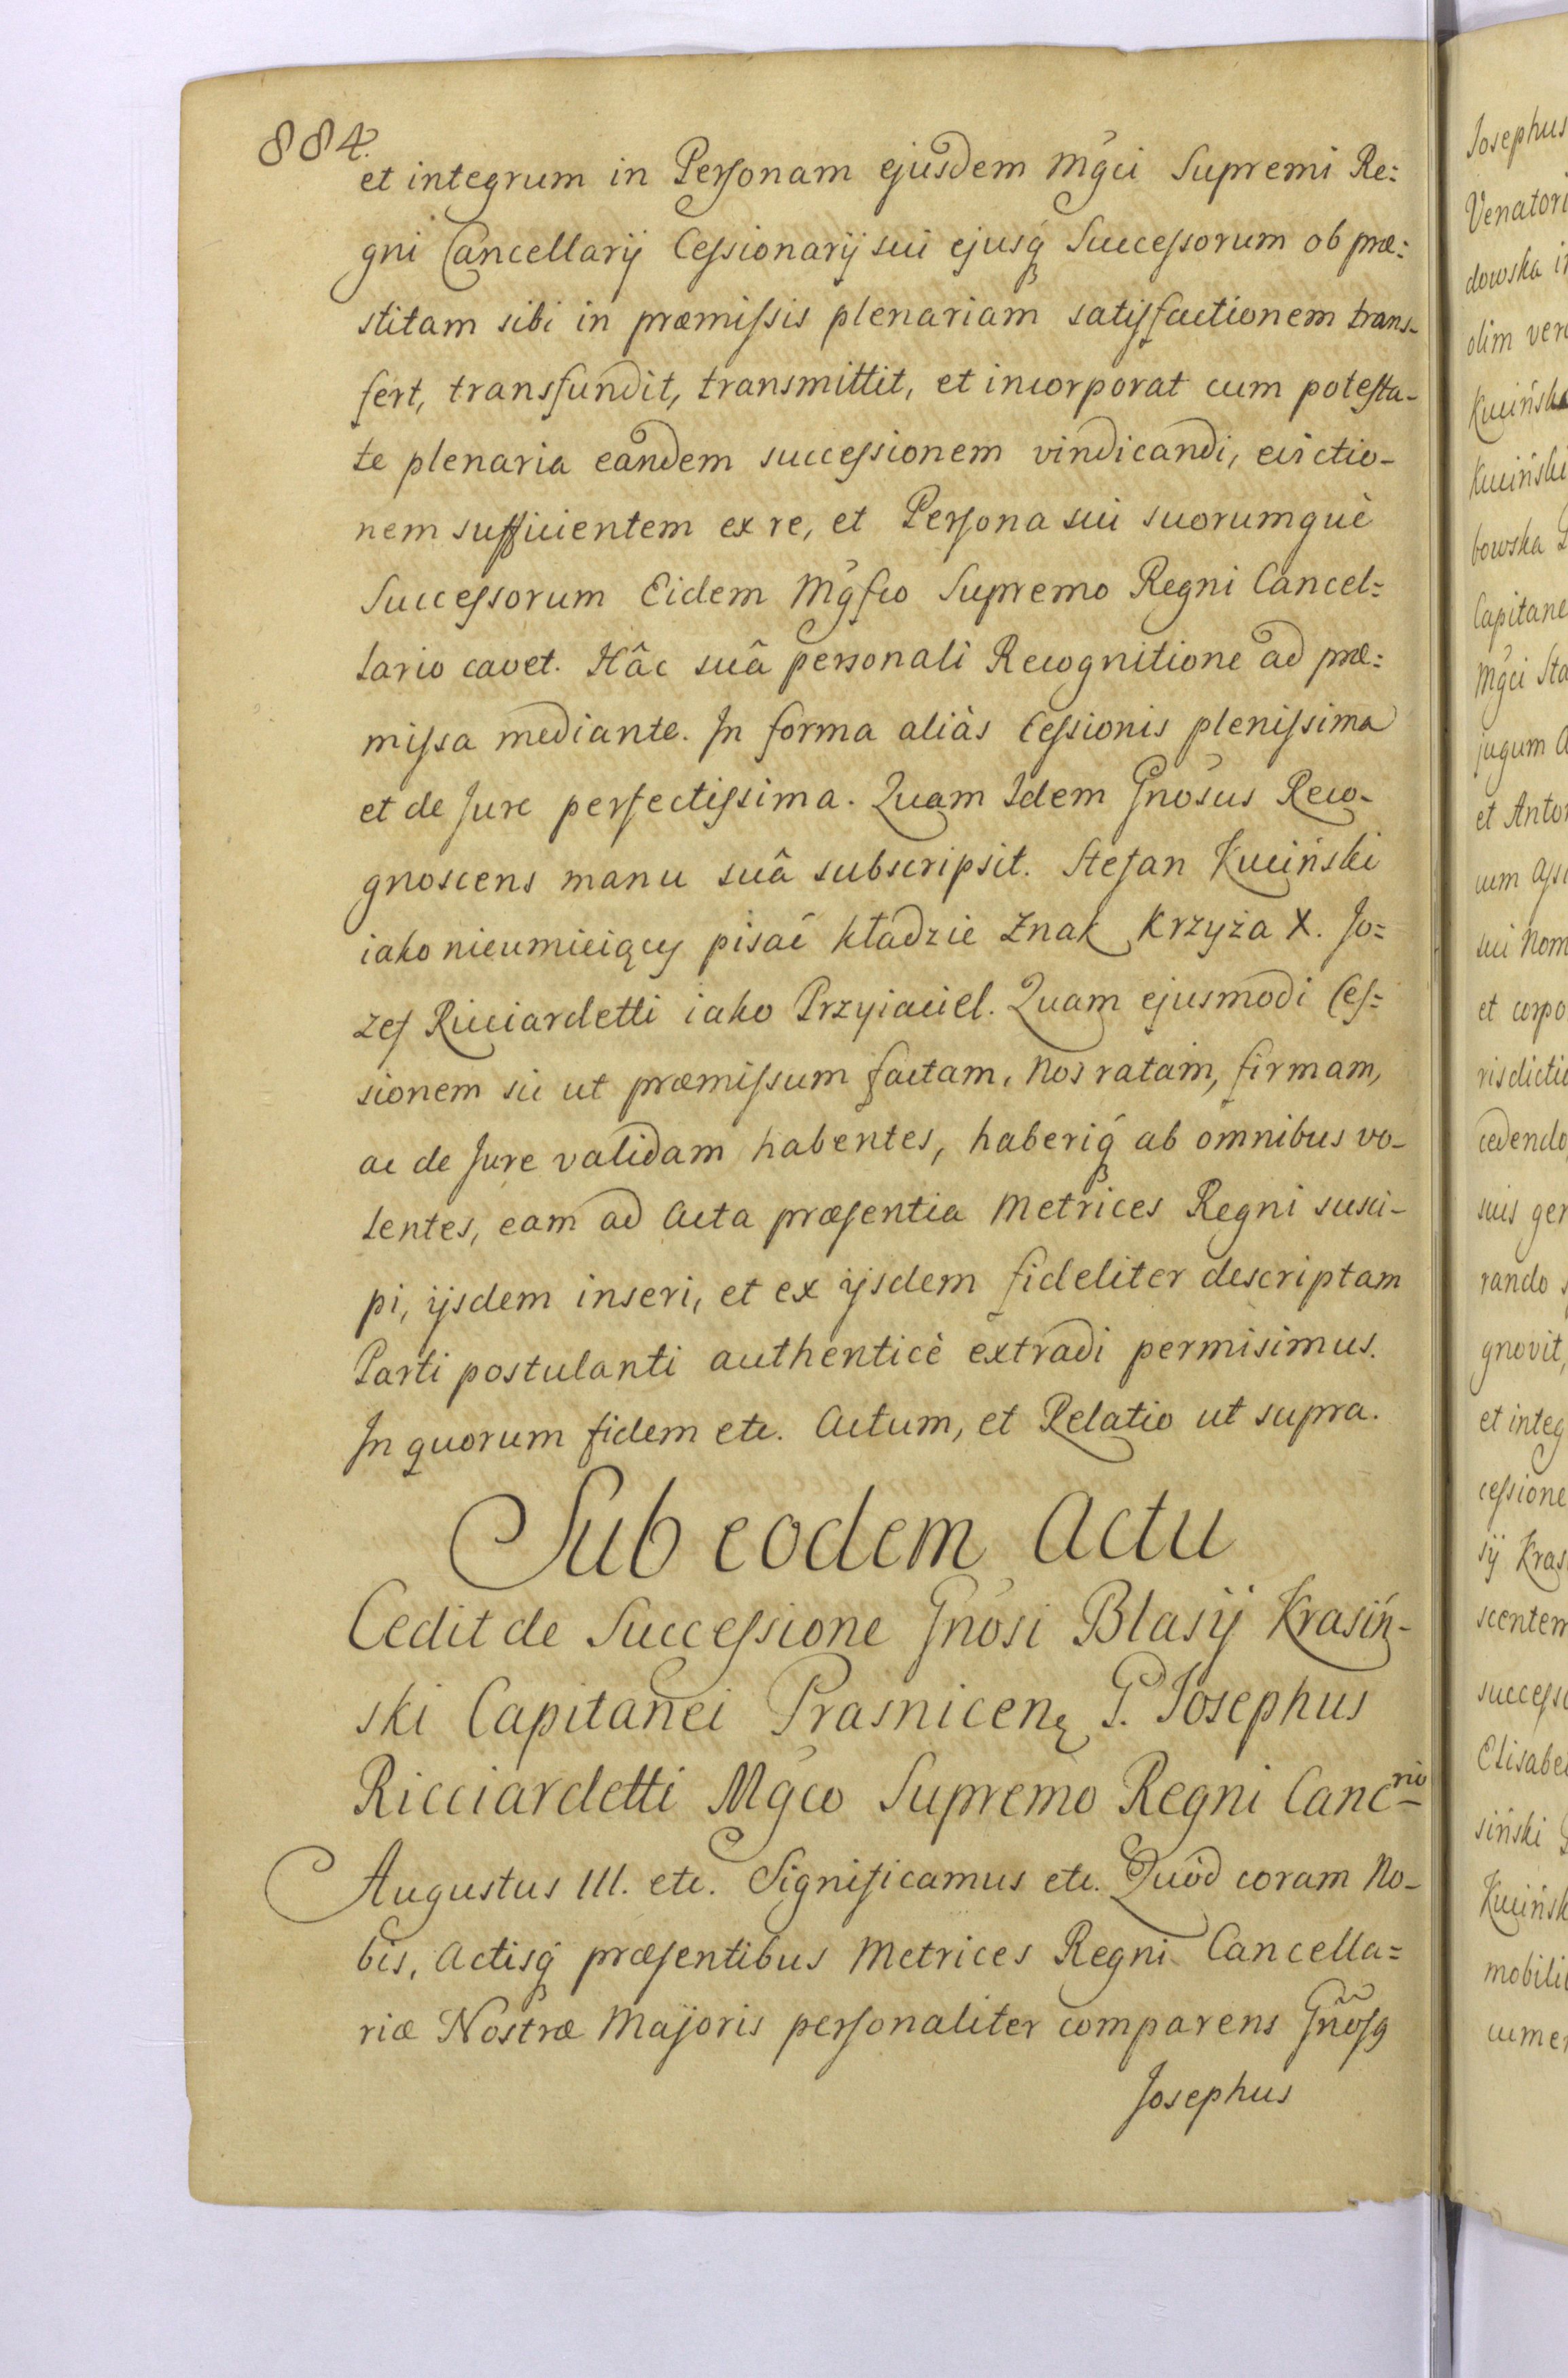 884.
et integrum in Personam ejusdem Mgci Supremi Re:
gni Cancellarij Cessionarij sui ejusq́ Successorum ob præ:
stitam sibi in præmissis plenariam satisfactionem trans-
fert, transfundit, transmittit, et incorporat cum potesta-
te plenaria eandem successionem vindicandi, evictio-
nem sufficientem ex re, et Persona sui suorumquè
Successorum Eidem Mgfco Supremo Regni Cancel:
lario cavet. Hâc suâ personali Recognitione ad præ:
missa mediante. In forma aliàs Cessionis plenissima
et de Jure perfectissima. Quam Idem Gnosus Reco-
gnoscens manu suâ subscripsit. Stefan Kuciński
iako nieumieiący pisać kładzie Znak Krzyża X. Jo:
zef Ricciardetti iako Przyiaciel. Quam ejusmodi Ces:
sionem sic ut præmissum factam, Nos ratam, firmam,
ac de Jure validam habentes, haberiq́ ab omnibus vo-
lentes, eam ad Acta præsentia Metrices Regni susci-
pi, ijsdem inseri, et ex ijsdem fideliter descriptam
Parti postulanti authenticè extradi permisimus.
In quorum fidem etc. Actum, et Relatio ut supra.
Sub eodem Actu
Cedit de Successione Gnosi Blasij Krasiń-
ski Capitanei Prasnicen. G. Josephus
Ricciardetti Mgco Supremo Regni Canc<sup>rio</sup>
Augustus III. etc. Significamus etc. Quòd coram No-
bis, Actisq́ præsentibus Metrices Regni Cancella:
riæ Nostræ Majoris personaliter comparens Gnosq
Josephus
Josephus
Venatori
dowska i
olim ver
Kucińsk
Kucińsk
bowska
Capitane
Mgci Sta
jugum
et Anto
cum
sui Nom
et corpo
risdicti
cedendo
suis ger
rando
gnovit,
et integ
cessione
sij Kras
scentem
successo
Elisabe
siński
Kucińsk
mobili
cume